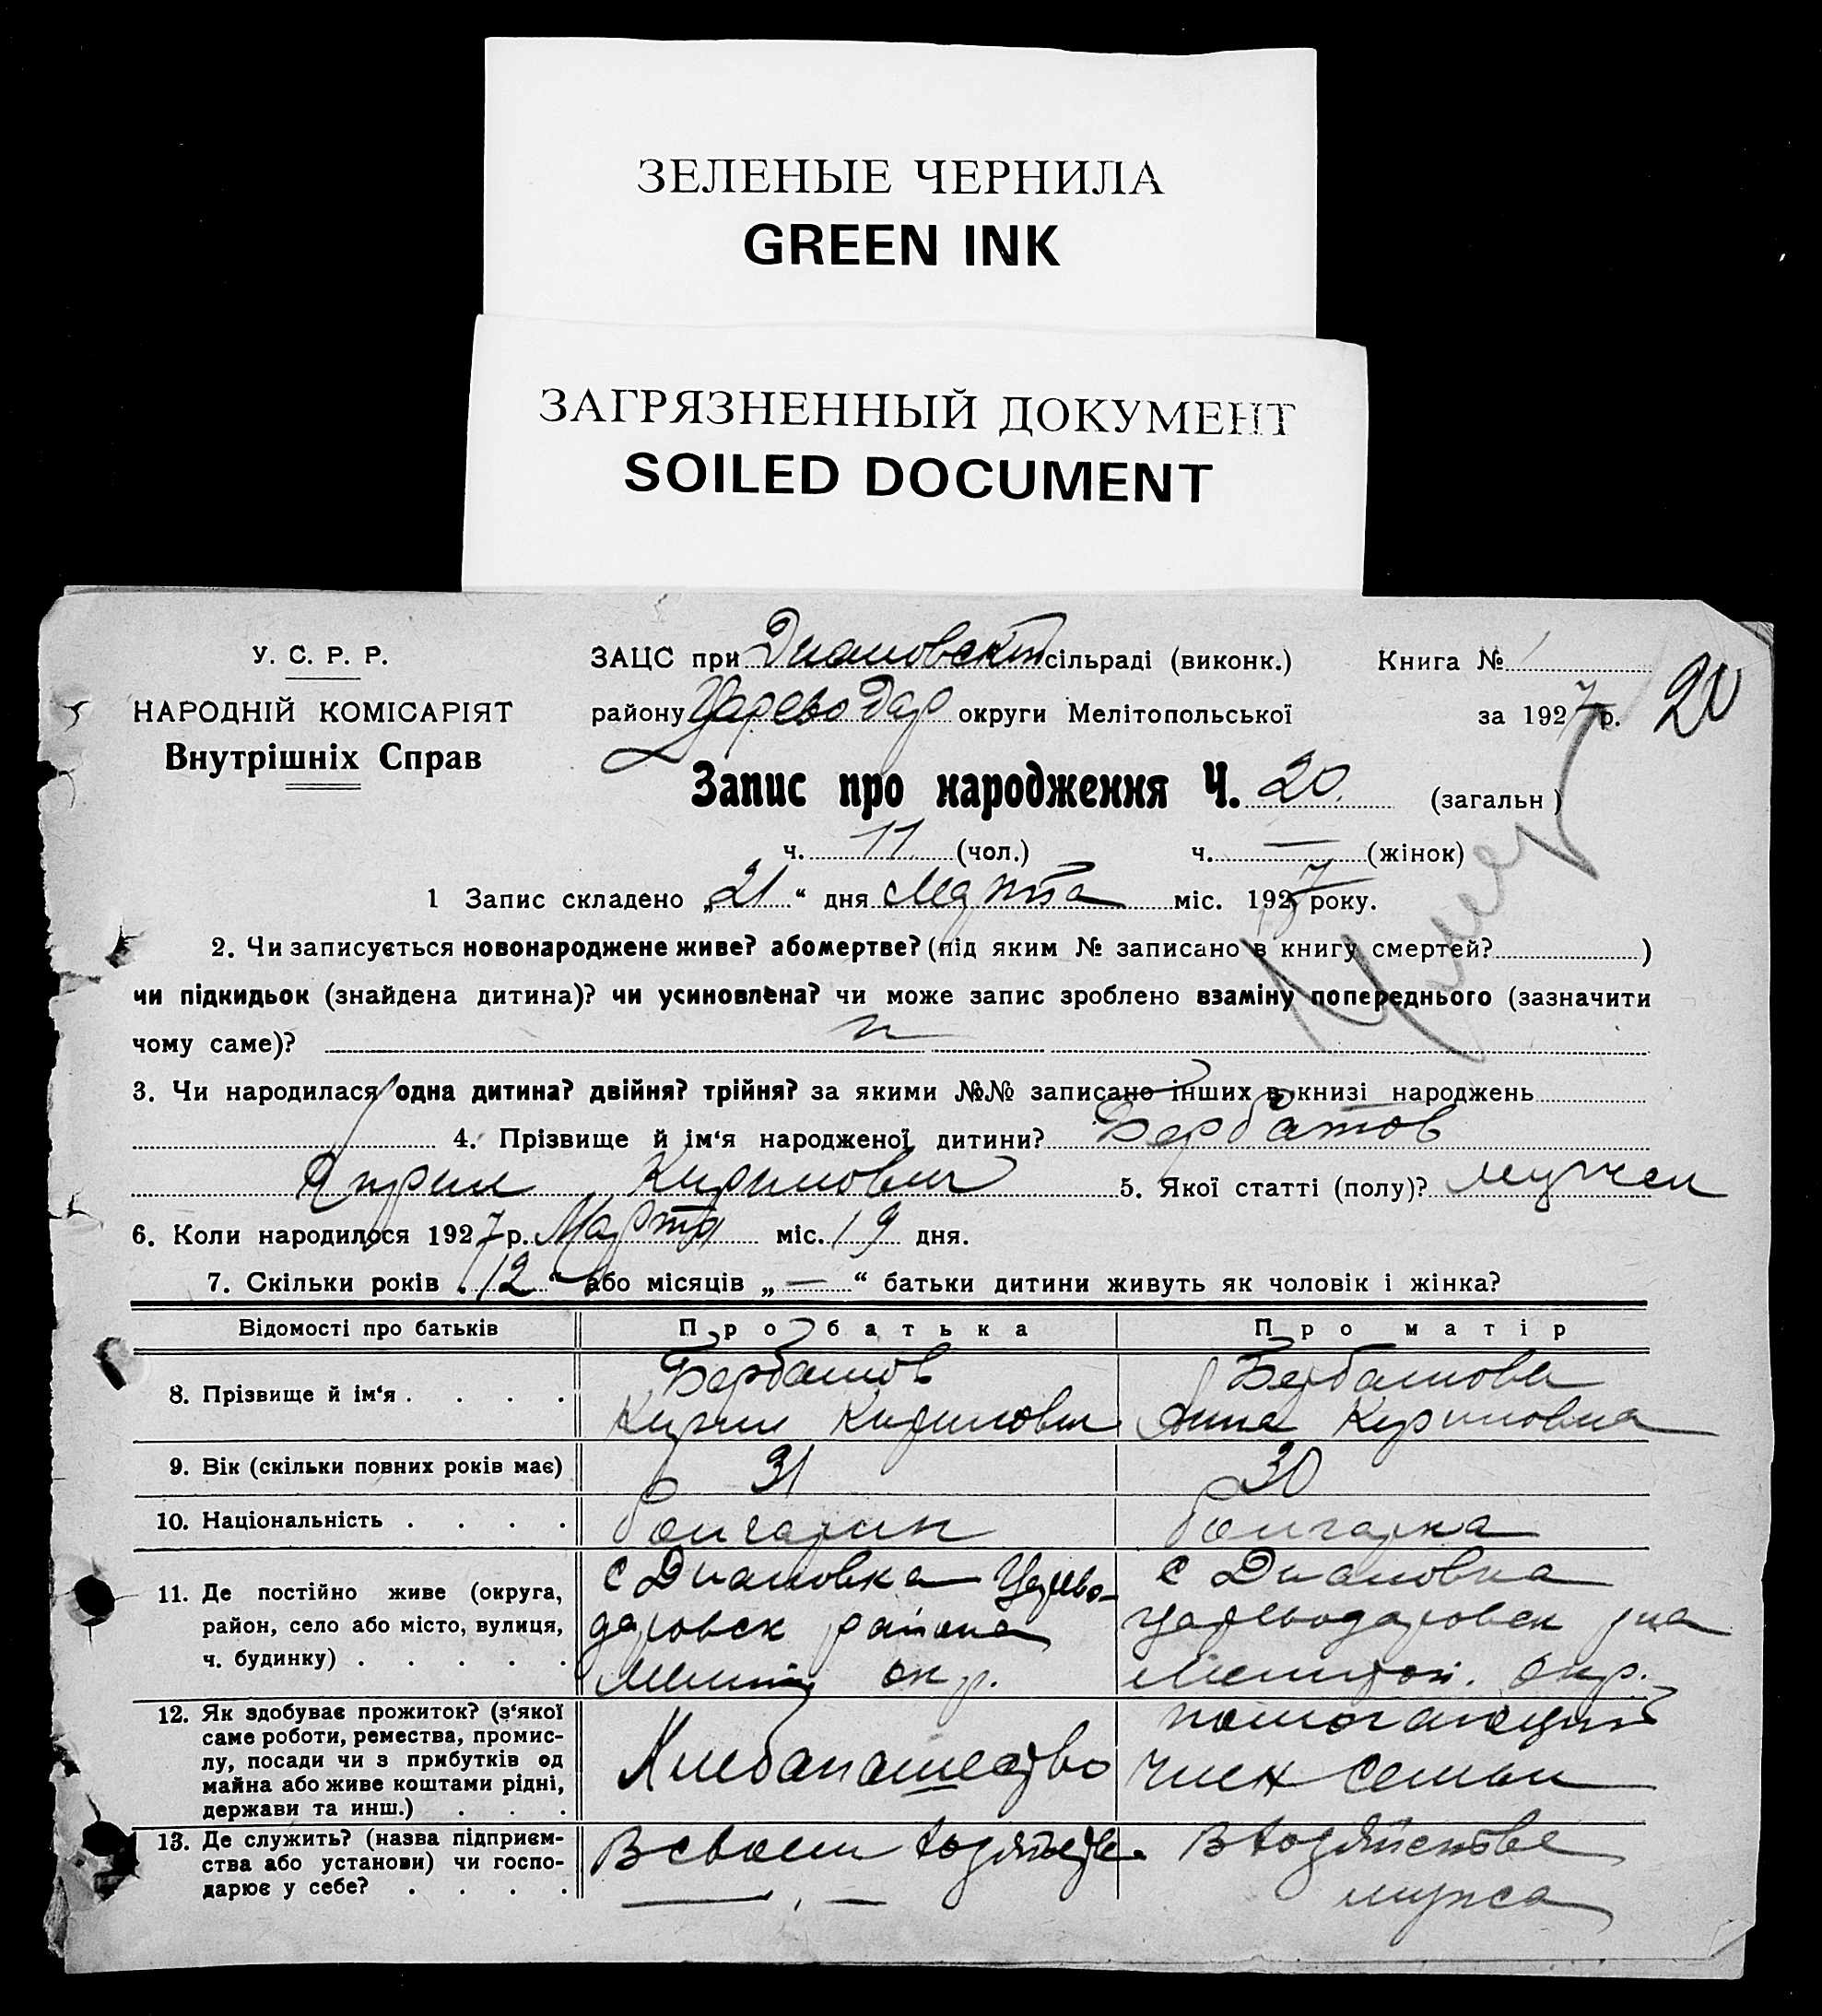 ЗЕЛЕНЫЕ ЧЕРНИЛА
GREEN INK
ЗАГРЯЗНЕННЫЙ ДОКУМЕНТ
SOILED DOCUMENT
У. С. Р. Р.
НАРОДНІЙ КОМІСАРІЯТ
Внутрішніх Справ
ЗАЦС при Диановской сільраді (виконк.) Книга № 1
району Царево Дар округи Мелітопольської за 1927 р. 20
Запис про народження Ч. 20. (загальн)
ч. 11 (чол.) ч. — (жінок)
1 Запис складено „21“ дня Марта міс. 1927 року.
2. Чи записується новонароджене живе? або мертве? (під яким № записано в книгу смертей? )
чи підкидьок (знайдена дитина)? чи усиновлена? чи може запис зроблено взаміну попереднього (зазначити
чому саме)?
3. Чи народилася одна дитина? двійня? трійня? за якими №№ записано інших в книзі народжень
4. Прізвище й ім‘я народженої дитини? Бербатов
Кирилович 5. Якої статті (полу)? мужск
6. Коли народилося 1927 р. Марта міс. 19 дня.
7. Скільки років „12“ або місяців „—“ батьки дитини живуть як чоловік і жінка?
Відомості про батьків Про батька Про матір
8. Прізвище й ім‘я . . . . Бербатов Бербатова
Кирил Кирилович Анна Кириловна
9. Вік (скільки повних років має) 31 30
10. Національність . . . . болгарин болгарка
11. Де постійно живе (округа,
район, село або місто, вулиця,
ч. будинку) . . . . .
с Диановка Царево-
даровск района
Мелит окр.
с Диановка
Цареводаровск р на
Мелитоп. окр.
12. Як здобуває прожиток? (з‘якої
саме роботи, ремества, промис-
лу, посади чи з прибутків од
майна або живе коштами рідні,
держави та инш.) . . .
Хлебопашество
помогающий
член семьи
13. Де служить? (назва підприєм-
ства або установи) чи госпо-
дарює у себе? . . . .
В своем хозяйстве
В хозяйстве
мужа